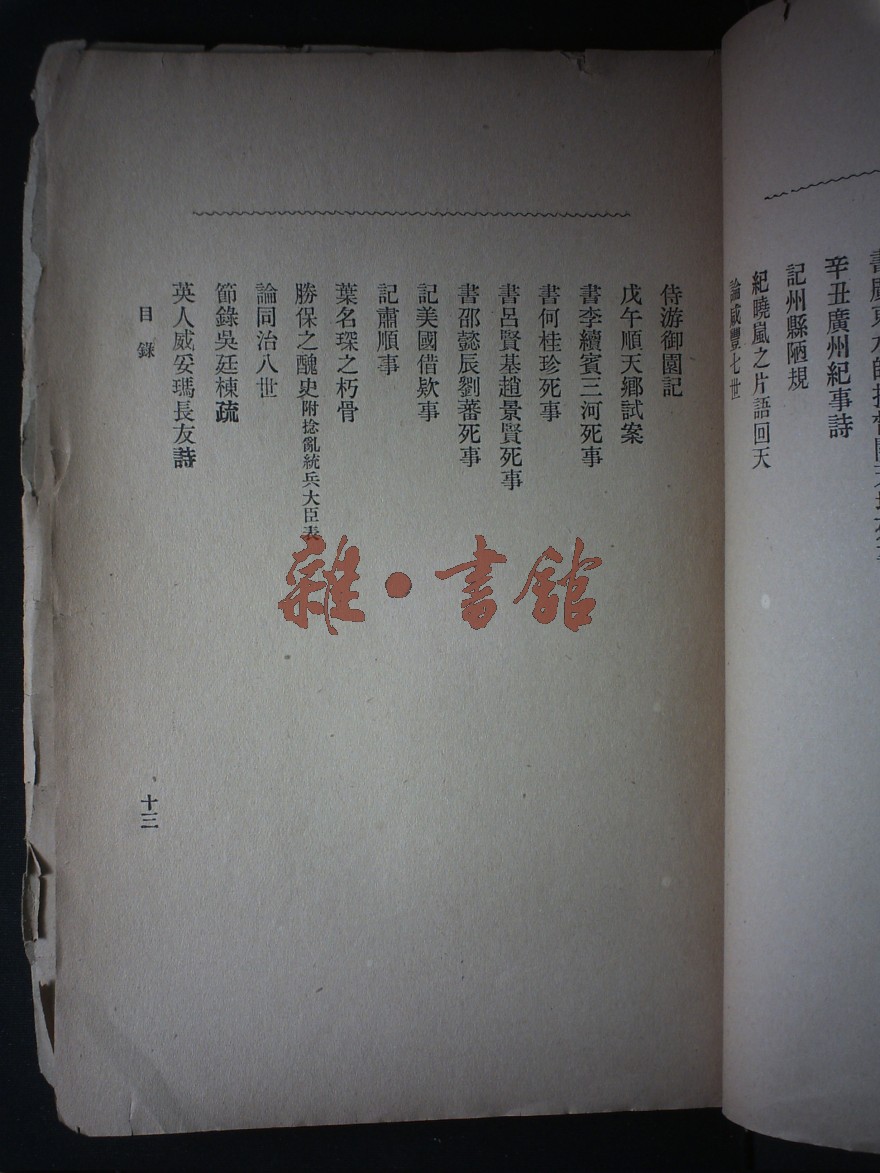 辛丑廣州紀事詩
記州縣陋規
紀曉嵐之片語回天
論咸豐七世
侍游御園記
戊午順天鄉試案
書李續賓三河死事
書何桂珍死事
書呂賢基趙景賢死事
書邵懿辰劉蕃死事
記美國借欵事
記肅順事
葉名琛之朽骨
勝保之醜史附捻亂統兵大臣表
論同治八世
節錄吳廷棟疏
英人威妥瑪長友詩
目錄
十三
雜·書館